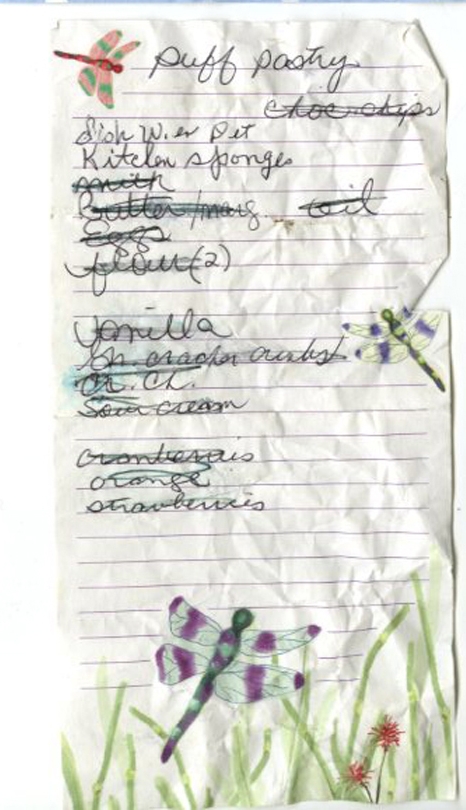 puff pastry
choc chips
Dish W. er Det
Kitchen sponges
milk
Butter/marg. oil
Eggs
flour (2)
Vanilla
Gr. cracker crust
Cr. Ch.
Sour cream
cranberries
orange
strawberries